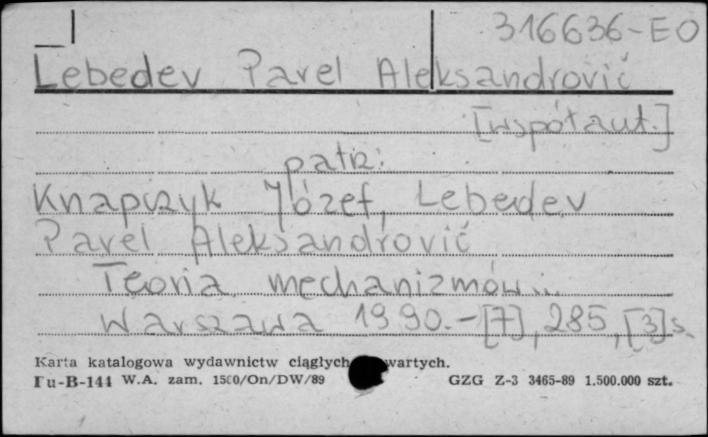 316636-EO
Lebedev Pavel Aleksandrovič
[współaut.]
patrz:
Knapczyk Józef, Lebedev
Pavel Aleksandrovič
Teoria mechanizmów...
Warszawa 1990.-[7], 285, [3] s.
Karta katalogowa wydawnictw ciągłych wartych.
Pu-B-144 W.A. zam. 1500/On/DW/89 GZG Z-3 3465-89 1.500.000 szt.